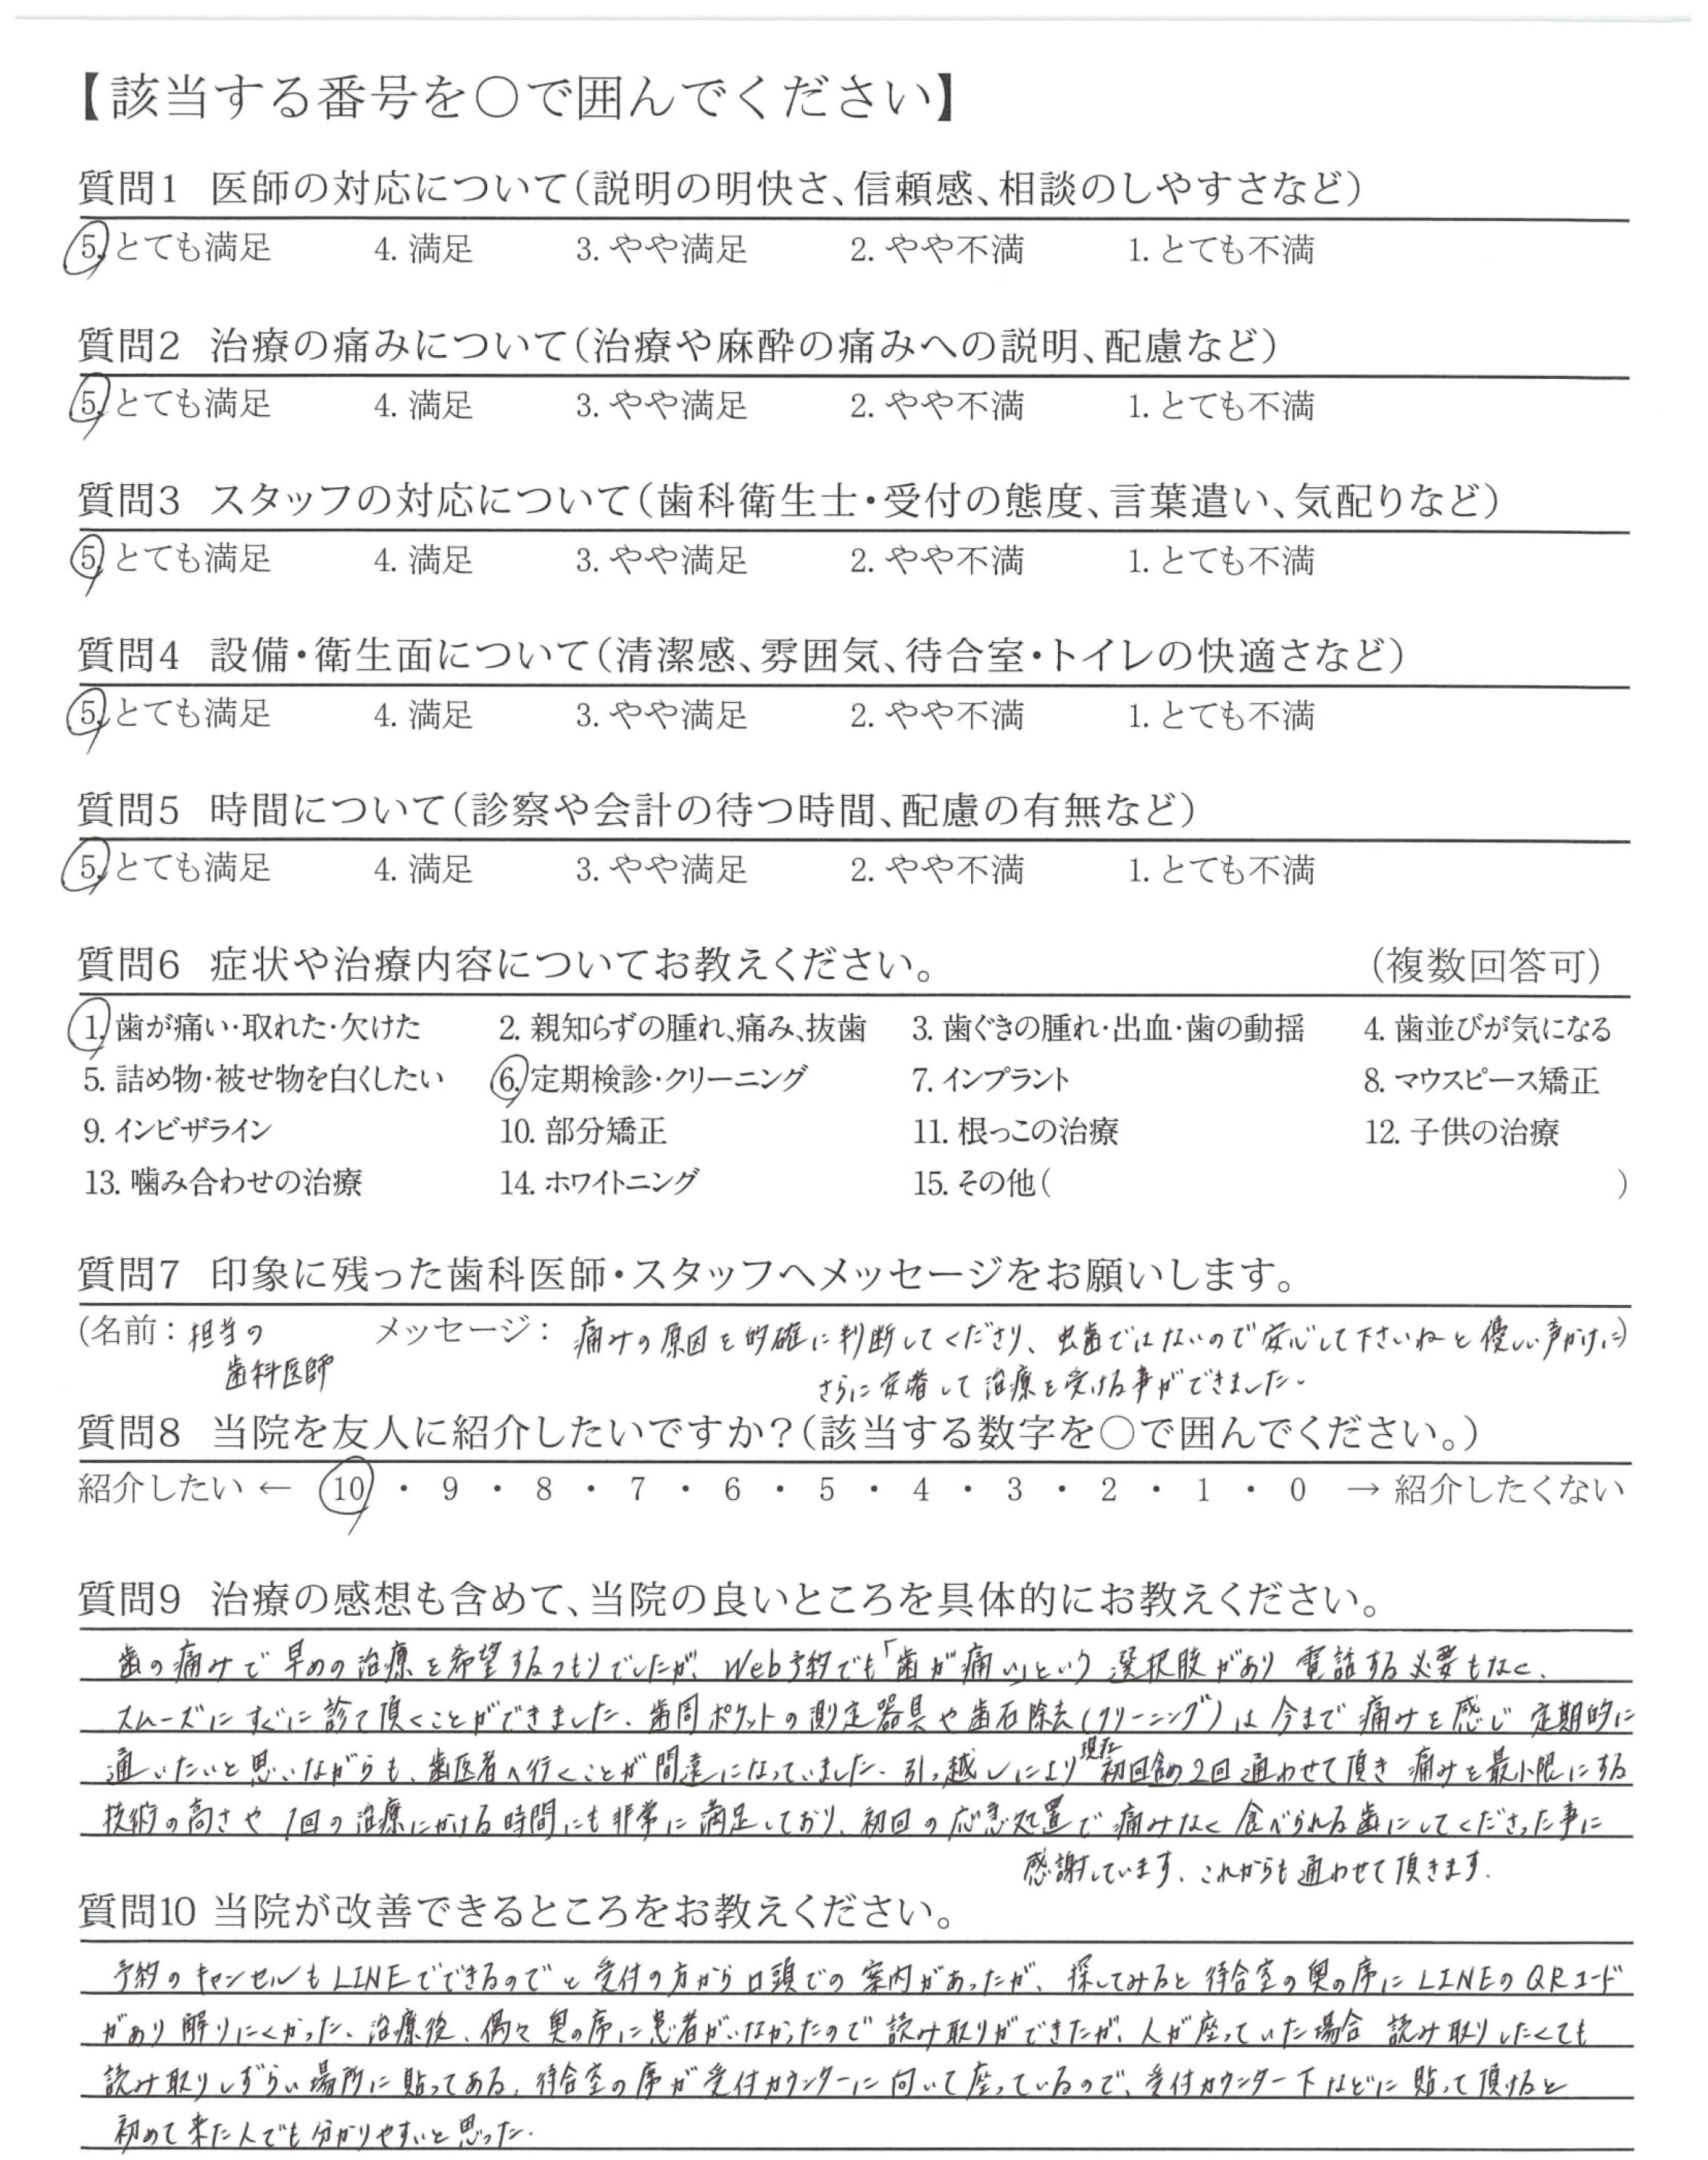 【該当する番号を○で囲んでください】
質問1 医師の対応について（説明の明快さ、信頼感、相談のしやすさなど）
5. とても満足 4. 満足 3. やや満足 2. やや不満 1. とても不満
質問2 治療の痛みについて（治療や麻酔の痛みへの説明、配慮など）
5. とても満足 4. 満足 3. やや満足 2. やや不満 1. とても不満
質問3 スタッフの対応について（歯科衛生士・受付の態度、言葉遣い、気配りなど）
5. とても満足 4. 満足 3. やや満足 2. やや不満 1. とても不満
質問4 設備・衛生面について（清潔感、雰囲気、待合室・トイレの快適さなど）
5. とても満足 4. 満足 3. やや満足 2. やや不満 1. とても不満
質問5 時間について（診察や会計の待つ時間、配慮の有無など）
5. とても満足 4. 満足 3. やや満足 2. やや不満 1. とても不満
質問6 症状や治療内容についてお教えください。 （複数回答可）
1. 歯が痛い・取れた・欠けた 2. 親知らずの腫れ、痛み、抜歯 3. 歯ぐきの腫れ・出血・歯の動揺 4. 歯並びが気になる
5. 詰め物・被せ物を白くしたい 6. 定期検診・クリーニング 7. インプラント 8. マウスピース矯正
9. インビザライン 10. 部分矯正 11. 根っこの治療 12. 子供の治療
13. 噛み合わせの治療 14. ホワイトニング 15. その他（ ）
質問7 印象に残った歯科医師・スタッフへメッセージをお願いします。
（名前：担当の メッセージ：痛みの原因を的確に判断してくださり、虫歯ではないので安心して下さいねと優しい声かけに）
歯科医師 さらに安堵して治療を受ける事ができました。
質問8 当院を友人に紹介したいですか？（該当する数字を○で囲んでください。）
紹介したい ← 10 ・ 9 ・ 8 ・ 7 ・ 6 ・ 5 ・ 4 ・ 3 ・ 2 ・ 1 ・ 0 → 紹介したくない
質問9 治療の感想も含めて、当院の良いところを具体的にお教えください。
歯の痛みで早めの治療を希望するつもりでしたが、Web予約でも「歯が痛い」という選択肢があり電話する必要もなく、
スムーズにすぐに診て頂くことができました。歯周ポケットの測定器具や歯石除去(クリーニング)は今まで痛みを感じ定期的に
通いたいと思いながらも、歯医者へ行くことが間遠になっていました。引っ越しにより現在初回含め2回通わせて頂き痛みを最小限にする
技術の高さや1回の治療にかける時間にも非常に満足しており、初回の応急処置で痛みなく食べられる歯にしてくださった事に
感謝しています。これからも通わせて頂きます。
質問10 当院が改善できるところをお教えください。
予約のキャンセルもLINEでできるのでと受付の方から口頭での案内があったが、探してみると待合室の奥の席にLINEのQRコード
があり解りにくかった。治療後、偶々奥の席に患者がいなかったので読み取りができたが、人が座っていた場合読み取りしたくても
読み取りしずらい場所に貼ってある。待合室の席が受付カウンターに向いて座っているので、受付カウンター下などに貼って頂けると
初めて来た人でも分かりやすいと思った。